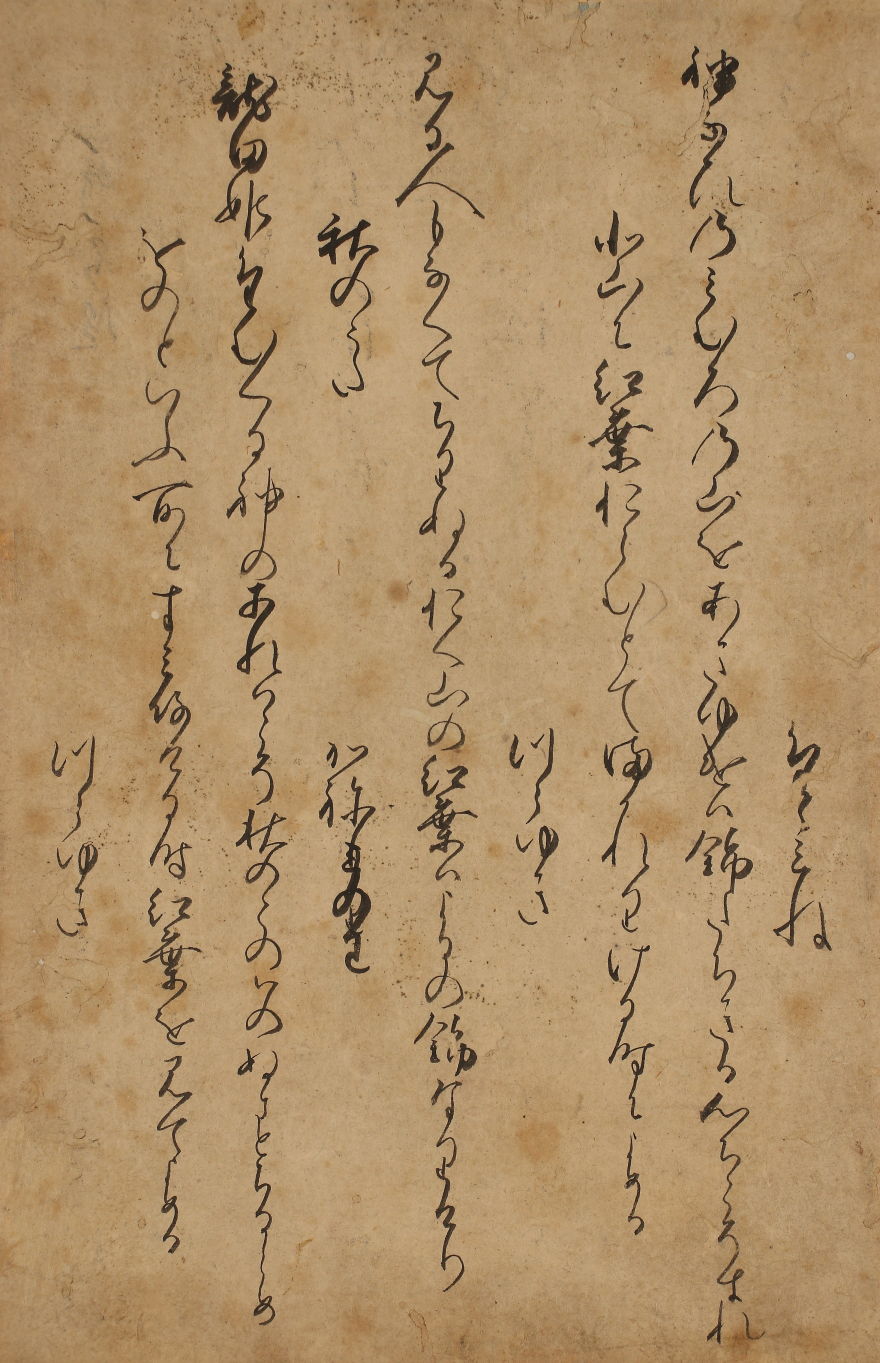 たゝみね
神なひのみむろの山をあきゆけは錦たちきる心ちこそすれ
北山に紅葉おらむとてまかれりける時によめる
つらゆき
見る人もなくてちりぬるおく山の紅葉はよるの錦なりけり
秋のうた
かねみの王
龍田姫たむくる神のあれはこそ秋のこのはのぬさとちるらめ
をのといふ所にすみ侍ける時紅葉を見てよめる
つらゆき